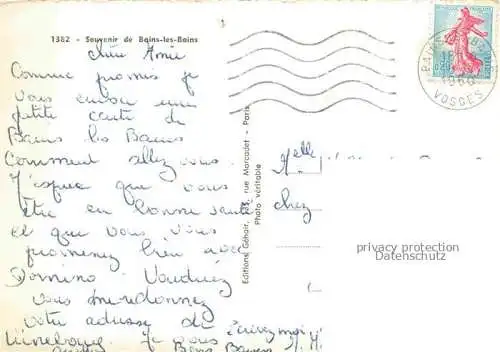 1382 - Souvenir de Bains-les-Bains
Chère Amie
Comme promis je
vous envoie une
petite carte de
Bains les Bains
Comment allez vous.
J'espère que vous
être en bonne santé
et que vous vous
promenez bien avec
Domino. Voudriez
vous me donnez
votre adresse de
Lunebourg. Je vous
Ecrivez moi
Bons Baisers
M. M.
Editions Géhair, rue Marcadet - Paris
Photo véritable
BAINS-LES-BAINS
VOSGES
Melle
chez
privacy protection
Datenschutz